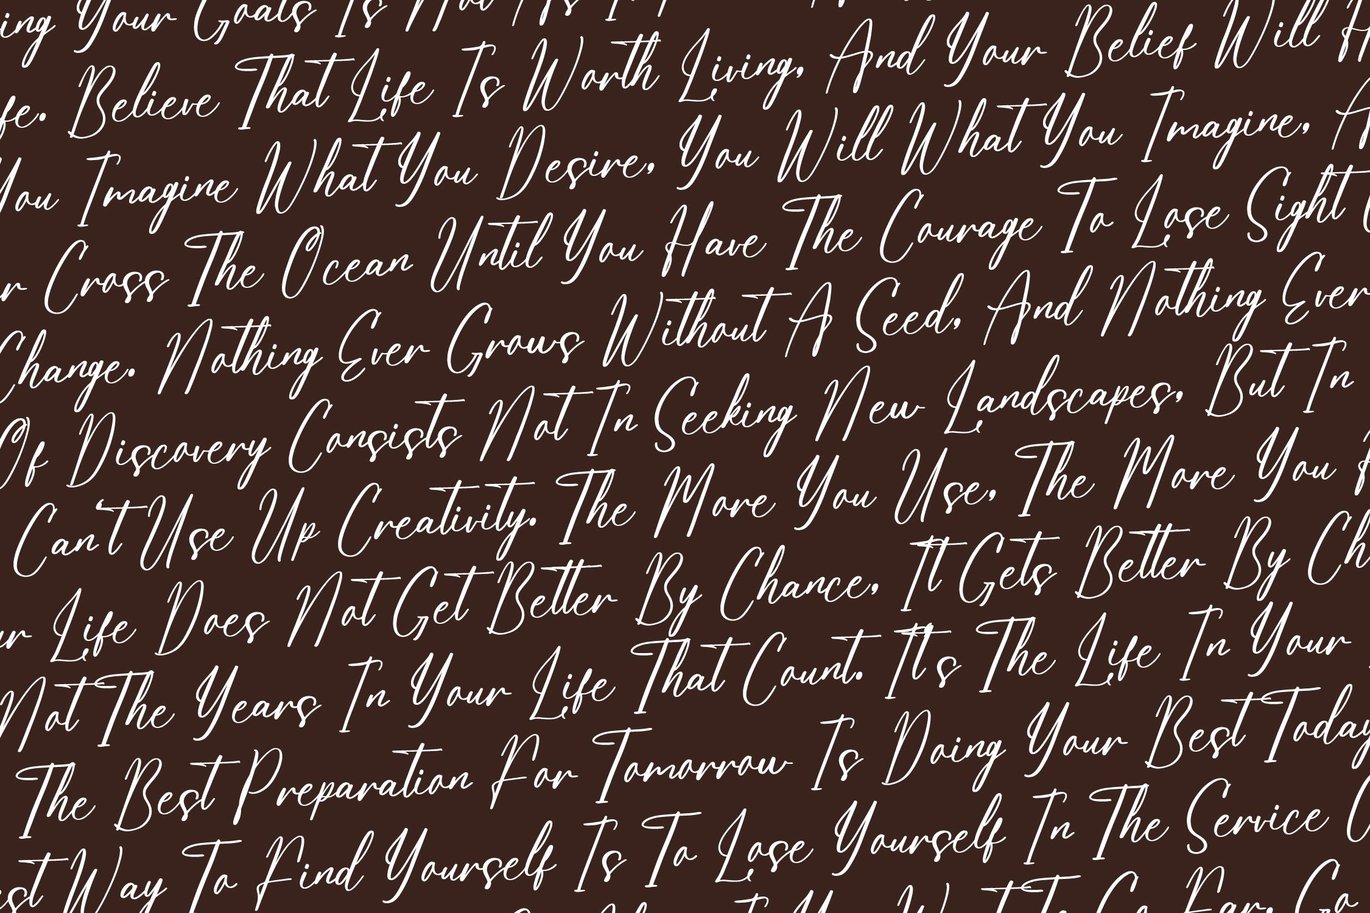 ing Your Goals Is Not As
fe. Believe That Life Is Worth Living, And Your Belief Will H
You Imagine What You Desire, You Will What You Imagine, A
r Cross The Ocean Until You Have The Courage To Lose Sight
Change. Nothing Ever Grows Without A Seed, And Nothing Ever
Of Discovery Consists Not In Seeking New Landscapes, But In
Can't Use Up Creativity. The More You Use, The More You
ur Life Does Not Get Better By Chance, It Gets Better By Ch
Not The Years In Your Life That Count. It's The Life In Your
The Best Preparation For Tomorrow Is Doing Your Best Today
est Way To Find Yourself Is To Lose Yourself In The Service
You Want To Go Far, Go